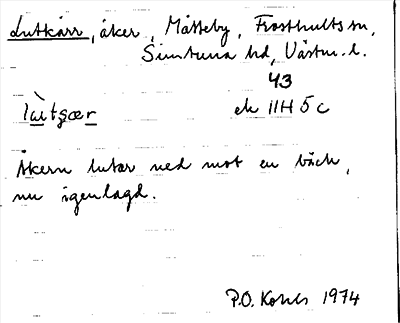 Lutkärr, åker, Mätteby, Frösthults sn,
Simtuna hd, Västm. l.
43
lùtꞩær ek 11H 5c
Åkern lutar ned mot en bäck,
nu igenlagd.
P.O. Kohls 1974